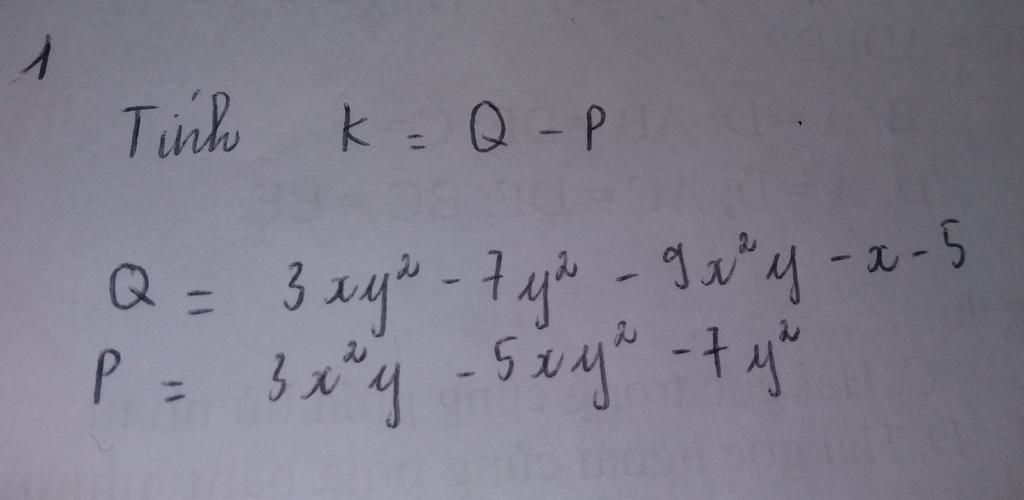 1
Tính K = Q - P
Q = 3xy² - 7y² - 9x²y - x - 5
P = 3x²y - 5xy² - 7y²